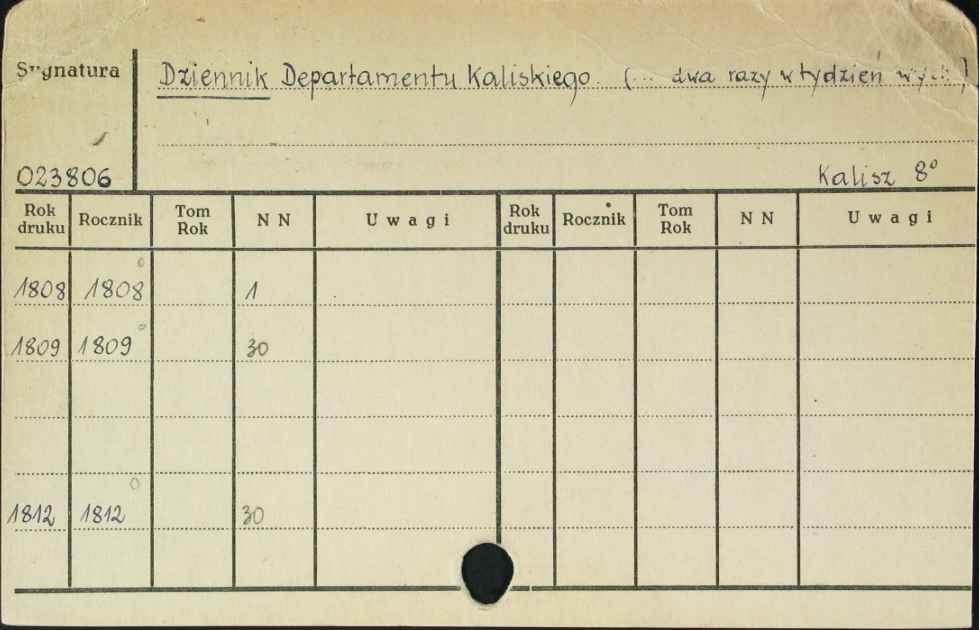 Sygnatura
Dziennik Departamentu Kaliskiego. (... dwa razy w tydzień
023806
Kalisz 8°
Rok druku Rocznik Tom Rok N N Uwagi Rok druku Rocznik Tom Rok N N Uwagi
1808 1808° 1
1809 1809° 30
1812 1812° 30